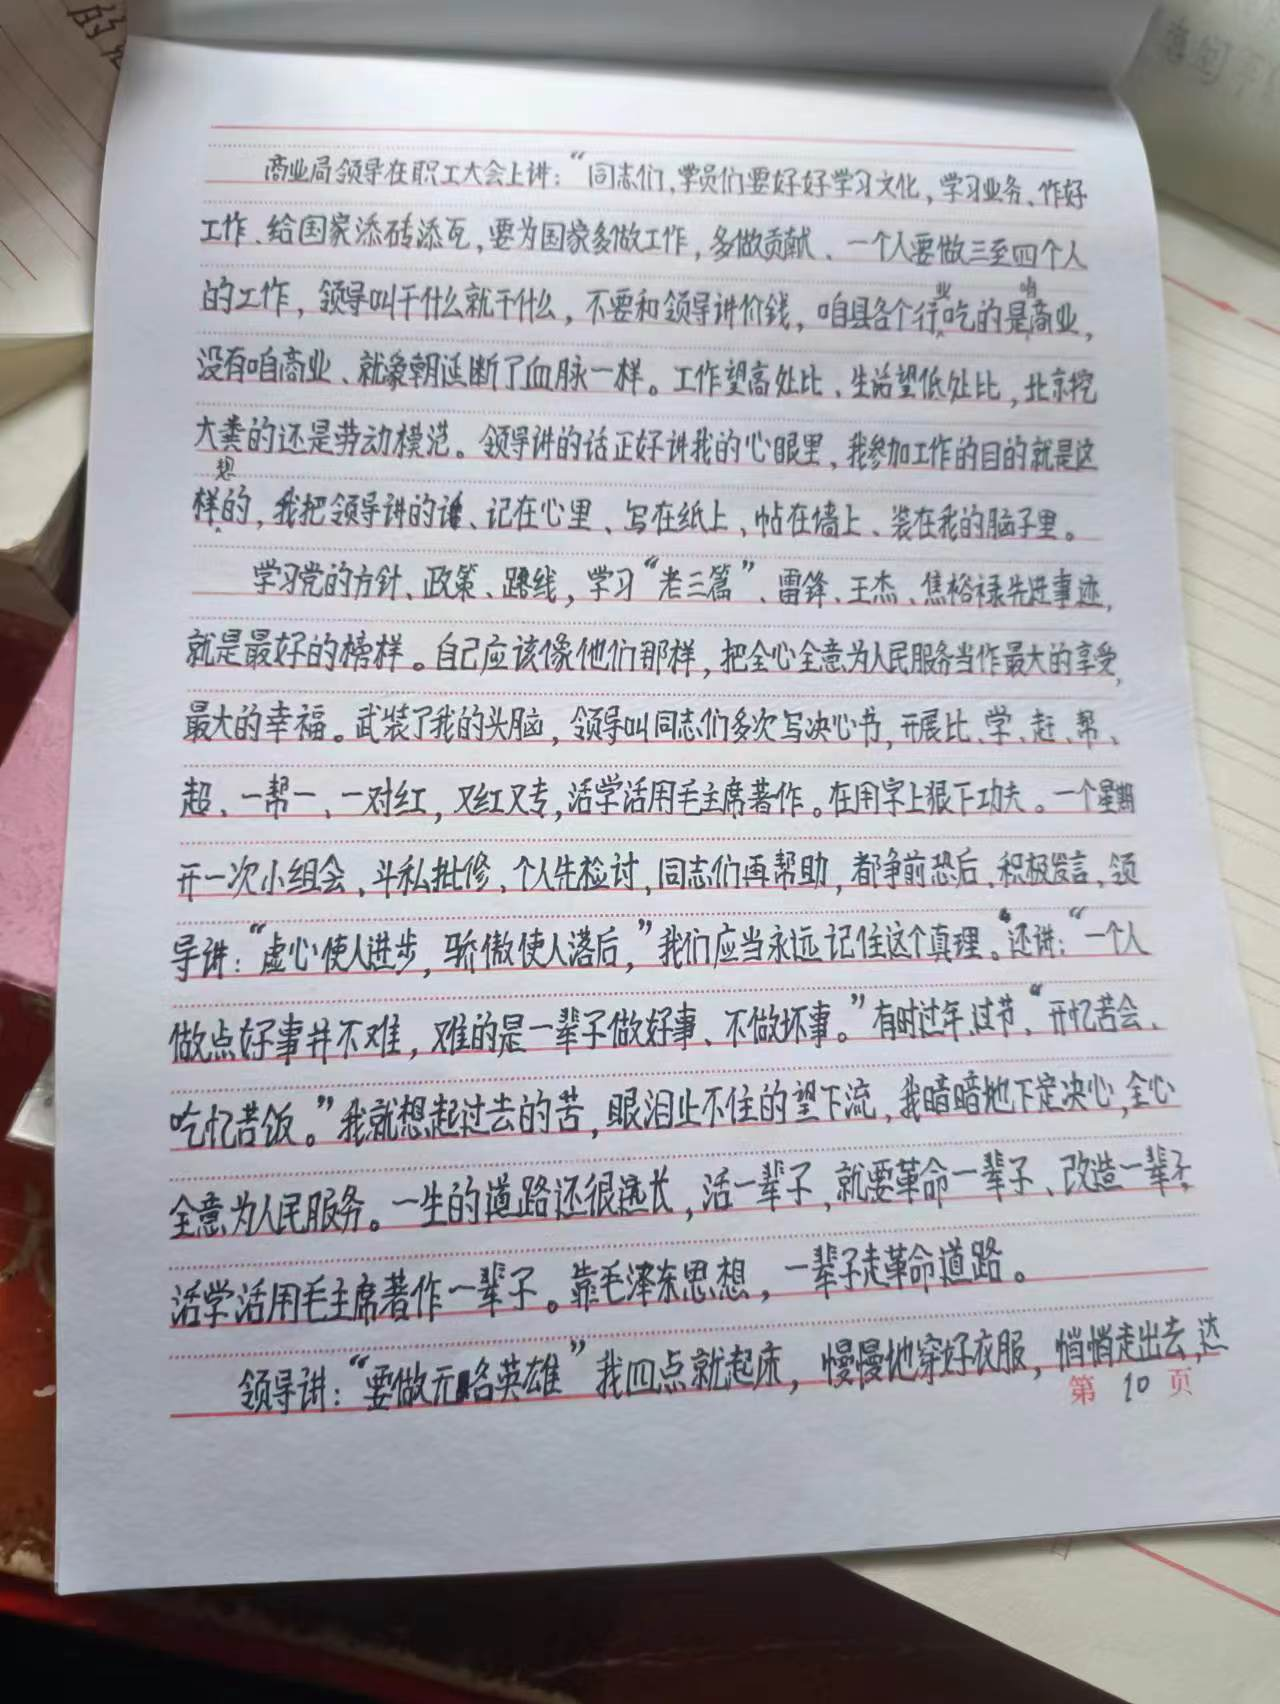 商业局领导在职工大会上讲：“同志们，学员们要好好学习文化，学习业务、作好
工作、给国家添砖添瓦，要为国家多做工作，多做贡献、一个人要做三至四个人
的工作，领导叫干什么就干什么，不要和领导讲价钱，咱县各个行业吃的是咱商业，
没有咱商业、就象朝廷断了血脉一样。工作望高处比、生活望低处比，北京挖
大粪的还是劳动模范。领导讲的话正好讲我的心眼里，我参加工作的目的就是这
样想的，我把领导讲的话、记在心里、写在纸上、帖在墙上、装在我的脑子里。
学习党的方针、政策、路线，学习“老三篇”、雷锋、王杰、焦裕禄先进事迹，
就是最好的榜样。自己应该像他们那样，把全心全意为人民服务当作最大的享受，
最大的幸福。武装了我的头脑，领导叫同志们多次写决心书，开展比、学、赶、帮、
超、一帮一、一对红，又红又专，活学活用毛主席著作。在用字上狠下功夫。一个星期
开一次小组会、斗私批修、个人先检讨，同志们再帮助，都争前恐后、积极发言，领
导讲：“虚心使人进步，骄傲使人落后，”我们应当永远记住这个真理。“还讲：“一个人
做点好事并不难，难的是一辈子做好事、不做坏事。”有时过年、过节，“开忆苦会、
吃忆苦饭。”我就想起过去的苦，眼泪止不住的望下流，我暗暗地下定决心，全心
全意为人民服务。一生的道路还很远长，活一辈子，就要革命一辈子、改造一辈子，
活学活用毛主席著作一辈子。靠毛泽东思想，一辈子走革命道路。
领导讲：“要做无名英雄”我四点就起床，慢慢地穿好衣服，悄悄走出去，达
第 10 页